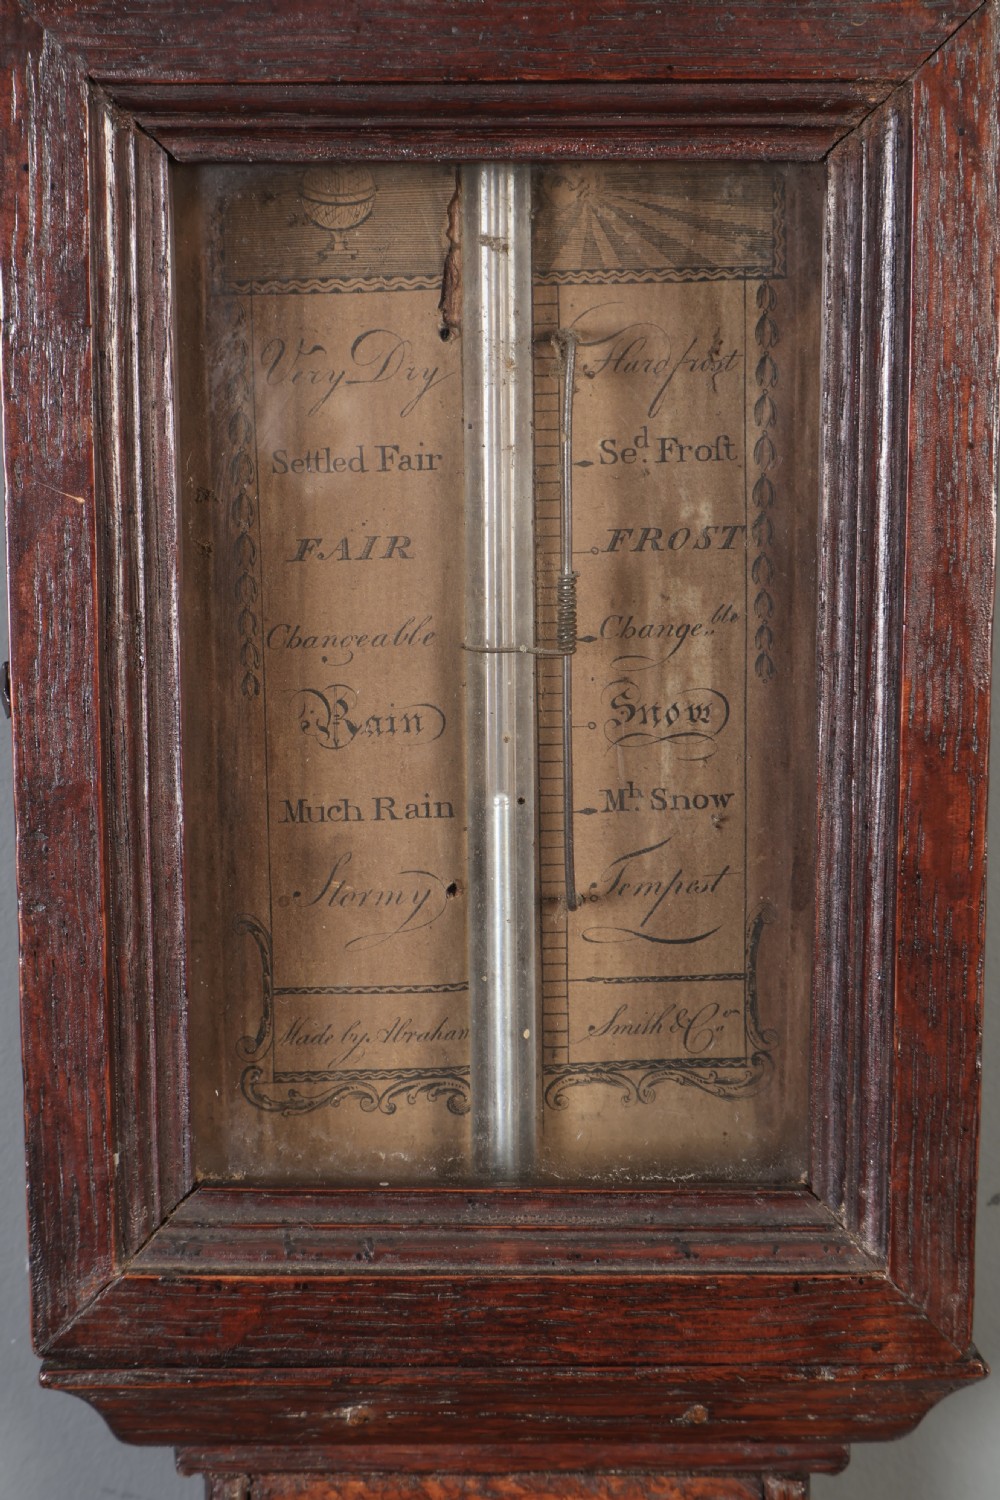 Very Dry Hard frost
Settled Fair Sed. Froſt
FAIR FROST
Changeable Change.ble
Rain Snow
Much Rain Mh. Snow
Stormy Tempest
Made by Abraham Smith & Co